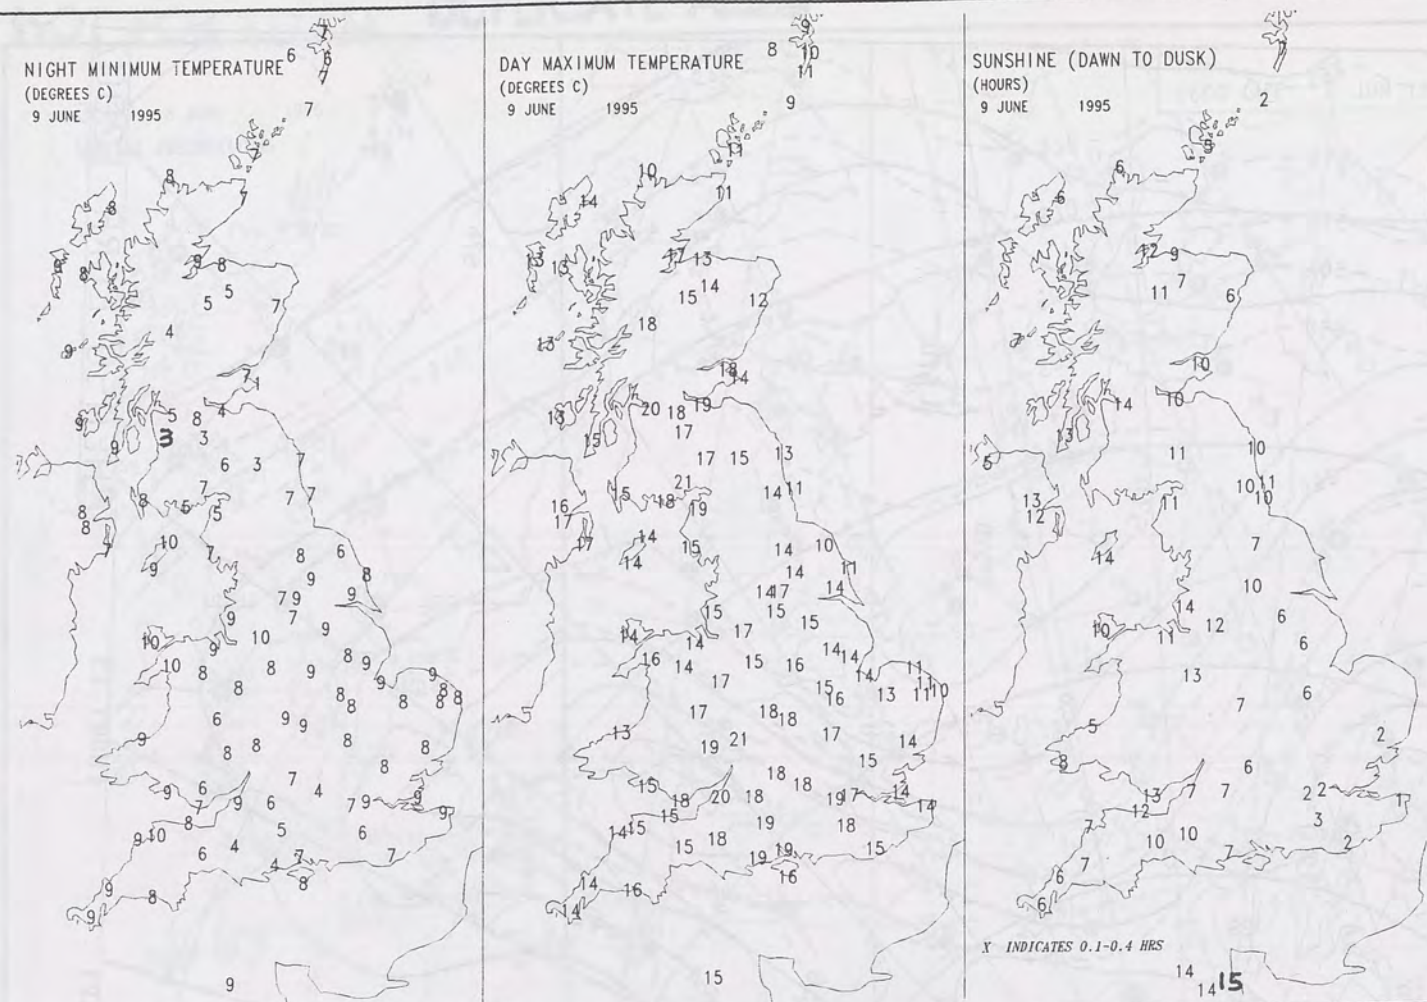 NIGHT MINIMUM TEMPERATURE
(DEGREES C)
9 JUNE 1995
7
6 6
7
7
7
8
7
8
9 8
9 8
5
5 7
4
9
7
1
5 8 4
9 3 3
9
6 3 7
7
8 5 7 7
8 5
8
7 10 7 8 6
9 9 8
7 9 9
9 7 9
10 10
9 8
10 8 8 9 9 9
8 9 8
8 8 8 8
8
6 9 9
9 8 8 8 8
8
6 7 4
9 7 9 6 7 9 9 9
9 10 8 5 6
6 4 4 7 7
8
9 8
9
9
DAY MAXIMUM TEMPERATURE
(DEGREES C)
9 JUNE 1995
9
8 10
11
9
11
10
14 11
17 13
13 13
15 14 12
18
13
18
14
20 18 19
13 17
15
17 15 13
21
16 15 18 19 14 11
17
17 14 15 14 10
14 14 11
14 17 14
15 15 15
14 14 17
16 14 15 16 14 14
17 14 11
15 16 13 11 11 10
17 18 18
13 19 21 17 14
15
15 18 18
18 20 18 19 17 14 14
14 15 15 19 18
15 18 19 19 15
14 16 16
14
15
SUNSHINE (DAWN TO DUSK)
(HOURS)
9 JUNE 1995
7
2
8
6
6
12 9
7
11 6
7
10
14 10
13
5 11 10
13 11 10 11 10
12
14 7
10
14 12 6
10 11 6
13
7 6
5 2
8 6
13 7 7 2 2 1
12 3
7 10 10 7 2
7
6
6
X INDICATES 0.1-0.4 HRS
14
14 15